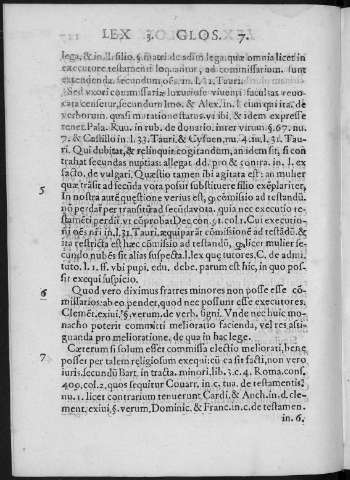 LEX 3. GLOS. 7.
lega. & in l. si filio. §. matri de adim lega. quæ omnia licet in
executore testamenti loquātur, ad commissarium sunt
extendenda. secundum oēs. in. l. 31. Tauri.
Sed vxori commissariæ luxuriose viuenti facultas reuo
cata censetur, secundum Imo. & Alex. in l. cum qui ita. de
verborum. quasi mutatione status. vt ibi, & idem expresse
tenet. Pala. Ruu. in rub. de donatio. inter virum. §. 67. nu.
7. & Castillo in l. 33. Tauri. & Cyfuen, nu. 4. in. l. 31. Tau-
ri. Qui dubitat, & relinquit cogitandum, an idem sit, si con
trahat secundas nuptias: allegat dd. pro & contra. in. l. ex
facto. de vulgari. Quæstio tamen ibi agitata est: an mulier
quæ trāsit ad secūda vota possit substituere filio exēplariter,
5
In nostra autē questione verius est, q̄ cōmissio ad testandū.
nō perdaf per transitū ad secūda vota. quia nec executio te-
stamēti perdit. vt cōprobat Dec. con 91. col. 1. Cui executio-
ni oēs nr̄i in. l. 31. Tauri. æquiparāt cōmissionē ad testādū. &
ita restricta est hæc cōmissio ad testandū, q̄ licet mulier se-
cundo nubēs sit alias suspecta. l. lex que tutores. C. de admi,
tuto. l. 1. ff. vbi pupi. edu. debe. parum est hic, in quo pos-
sit exequi suspicio.
6
Quod vero diximus fratres minores non posse esse cō-
missarios: ab eo. pendet, quod nec possunt esse executores.
Clemēt. exiui. §. verum. de verb. signi. Vnde nec huic mo-
nacho poterit committi melioratio facienda, vel res assi-
guanda pro melioratione, de qua in hac lege.
7
Cæterum si solum esset commissa electio meliorati, bene
posset per talem religiosum exequi: cū ea sit facti, non vero
iuris. secundū Bart. in tracta. minori, lib. 3. c. 4. Roma. conf.
409. col. 2. quos sequitur Couarr, in c. tua. de testamentis.
nu. 1. licet contrarium tenuerunt Cardi. & Anch. in d. cle-
ment, exiui, §. verum, Dominic. & Franc. in. c. de testamen.
in. 6.